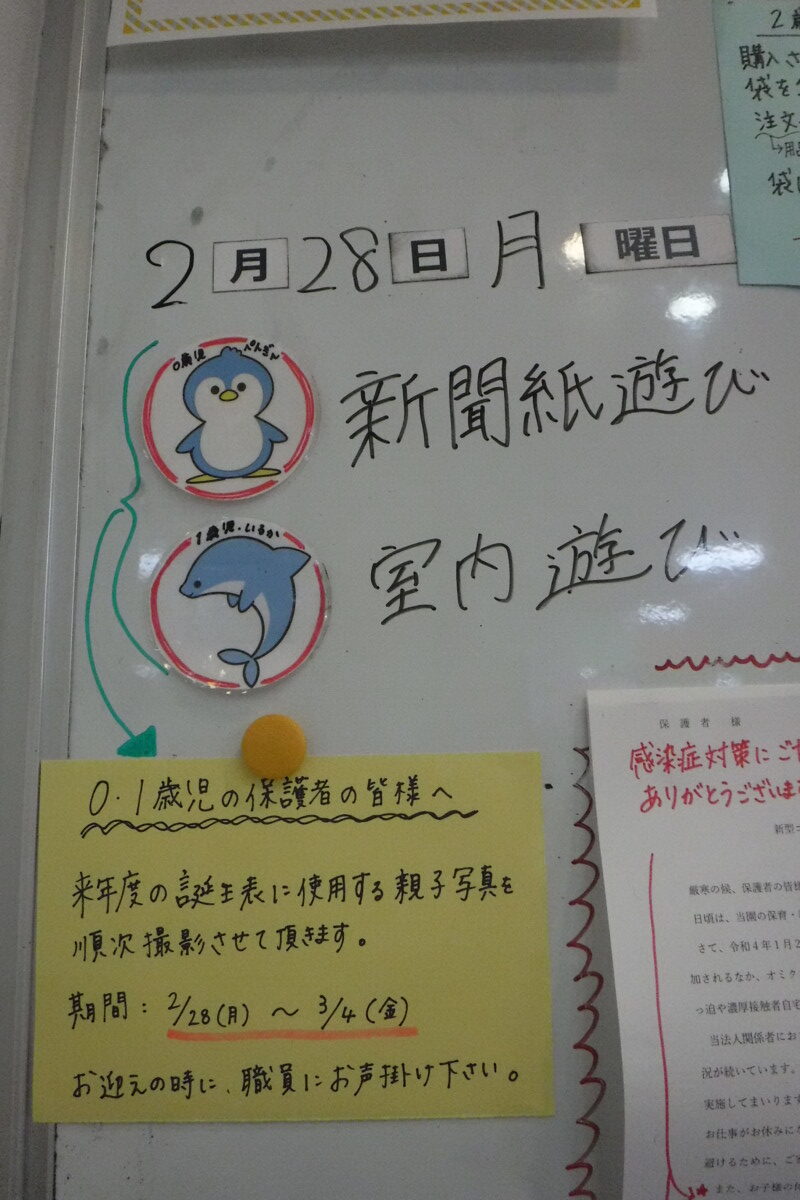 2月28日月曜日
0歳児 ぺんぎん
新聞紙遊び
1歳児・いるか
室内遊び
0・1歳児の保護者の皆様へ
来年度の誕生表に使用する親子写真を
順次撮影させて頂きます。
期間：2/28(月) ～ 3/4(金)
お迎えの時に、職員にお声掛け下さい。
2歳
購入さ
袋を
注文
→用品
袋に
保護者 様
感染症対策にご
ありがとうございま
新型コ
厳寒の候、保護者の皆様
日頃は、当園の保育・
さて、令和4年1月2
加されるなか、オミク
っ迫や濃厚接触者自宅
当法人関係者にお
況が続いています。
実施してまいります
お仕事がお休みにな
避けるために、ご
また、お子様の